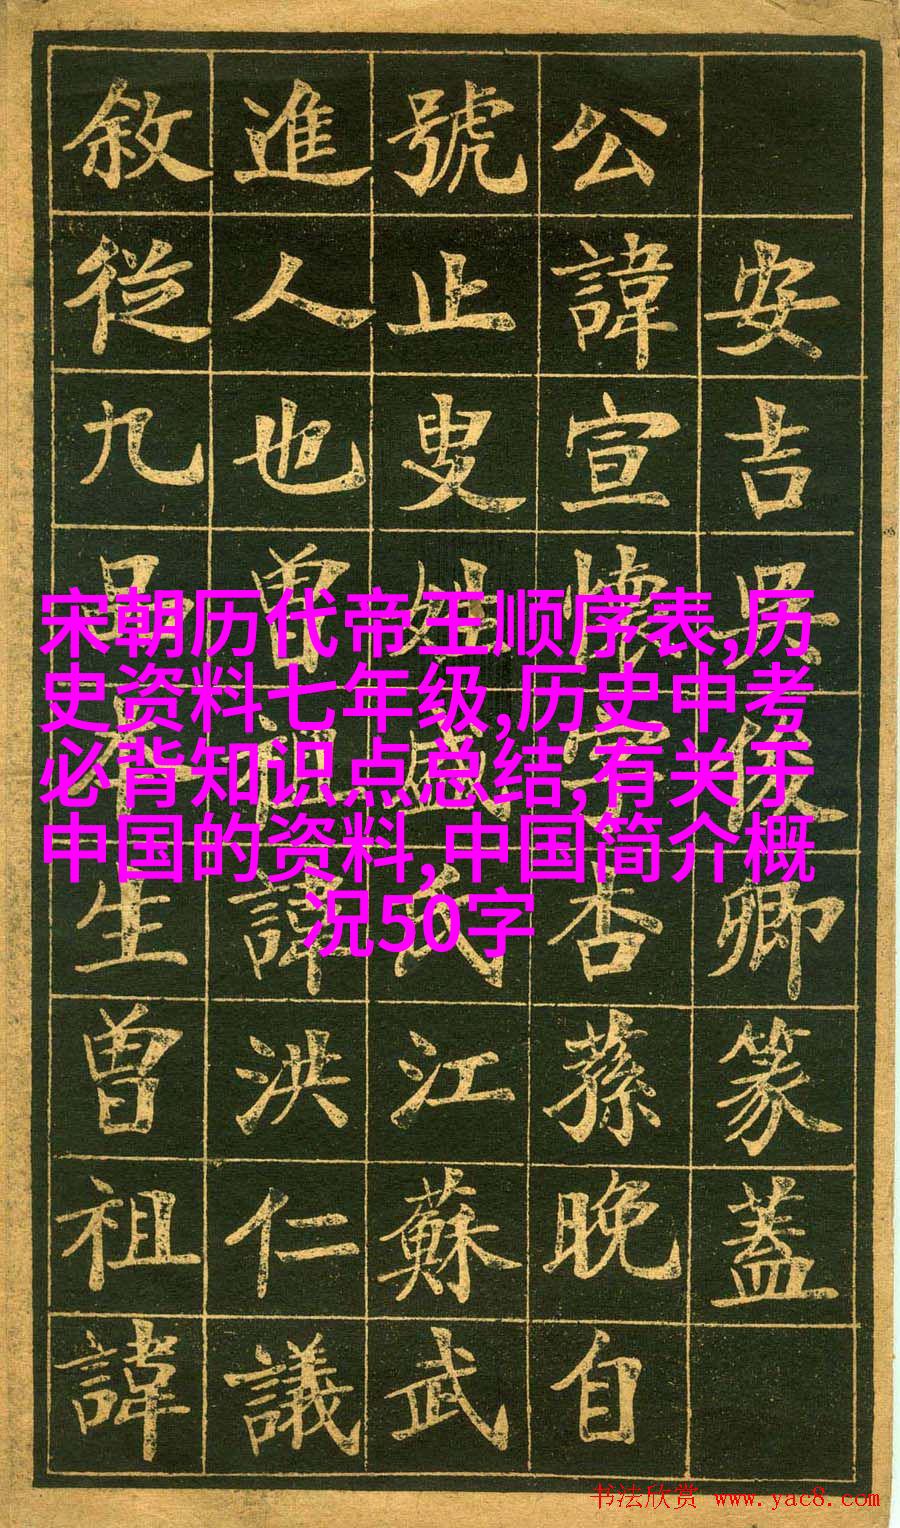 安吉吳俊卿篆蓋
公諱宣懷字杏蓀晚自
號止叟姓盛氏江蘇武
進人也曾祖諱洪仁議
敘從九品本生曾祖諱
宋朝历代帝王顺序表,历
史资料七年级,历史中考
必背知识点总结,有关于
中国的资料,中国简介概
况50字
书法欣赏 www.yac8.com